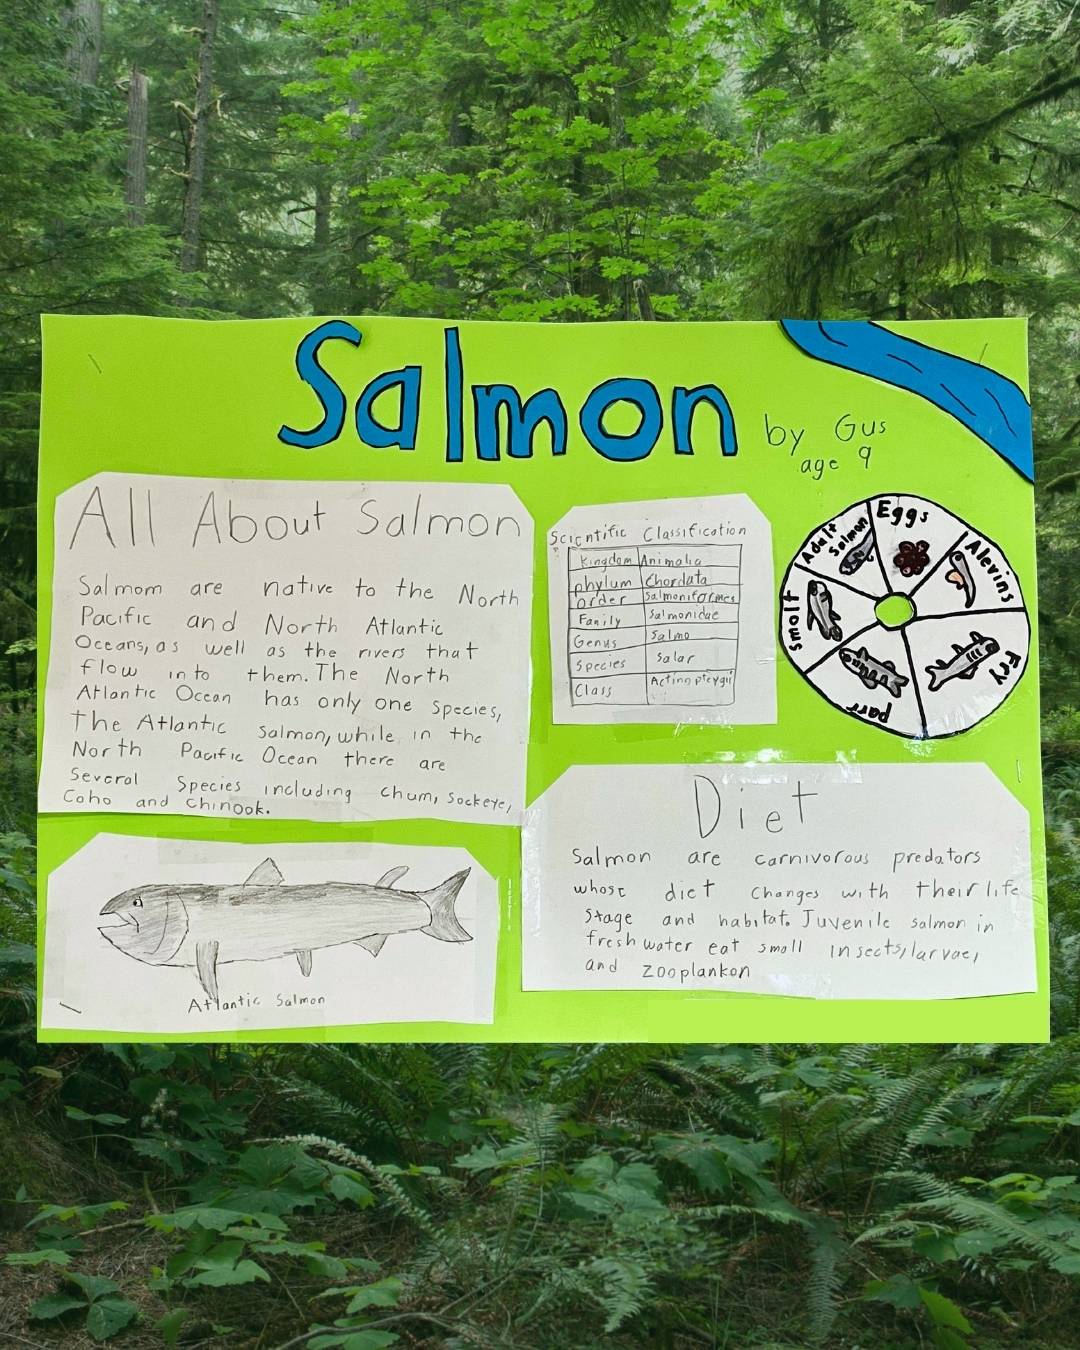 Salmon
by Gus
age 9
All About Salmon
Salmom are native to the North
Pacific and North Atlantic
Oceans, as well as the rivers that
flow into them. The North
Atlantic Ocean has only one species,
the Atlantic salmon, while in the
North Pacific Ocean there are
several species including chum, sockeye,
Coho and chinook.
Scientific Classification
Kingdom Animalia
phylum Chordata
order Salmoniformes
Family Salmonidae
Genus Salmo
Species Salar
Class Actinopterygii
Eggs
Alevins
Fry
parr
Smolt
Adult
Salmon
Diet
Salmon are carnivorous predators
whose diet changes with their life
stage and habitat. Juvenile salmon in
freshwater eat small insects, larvae,
and zooplankon
Atlantic Salmon